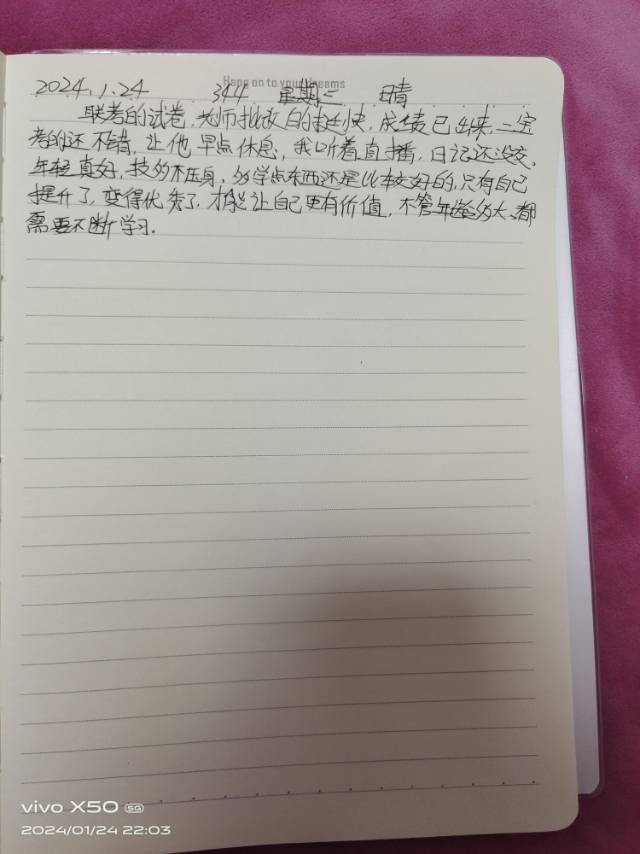 Hang on to your dreams
2024.1.24 344 星期三 晴
联考的试卷,老师批改的挺快,成绩已出来,二宝
考的还不错,让他早点休息,我听着直播,日记还没交,
年轻真好,技多不压身,多学点东西还是比较好的,只有自己
提升了,变得优秀了,才能让自己更有价值,不管年龄多大,都
需要不断学习.
vivo X50 5G
2024/01/24 22:03